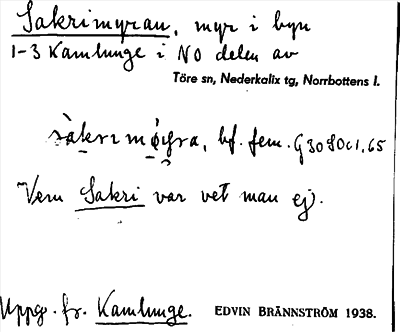 Sakrimyran, myr i byn
1-3 Kamlunge i NO delen av
Töre sn, Nederkalix tg, Norrbottens l.
sàkrımǿyra, bf. fem. G 30 S0c1.65
Vem Sakri var vet man ej.
Uppg. fr. Kamlunge. EDVIN BRÄNNSTRÖM 1938.